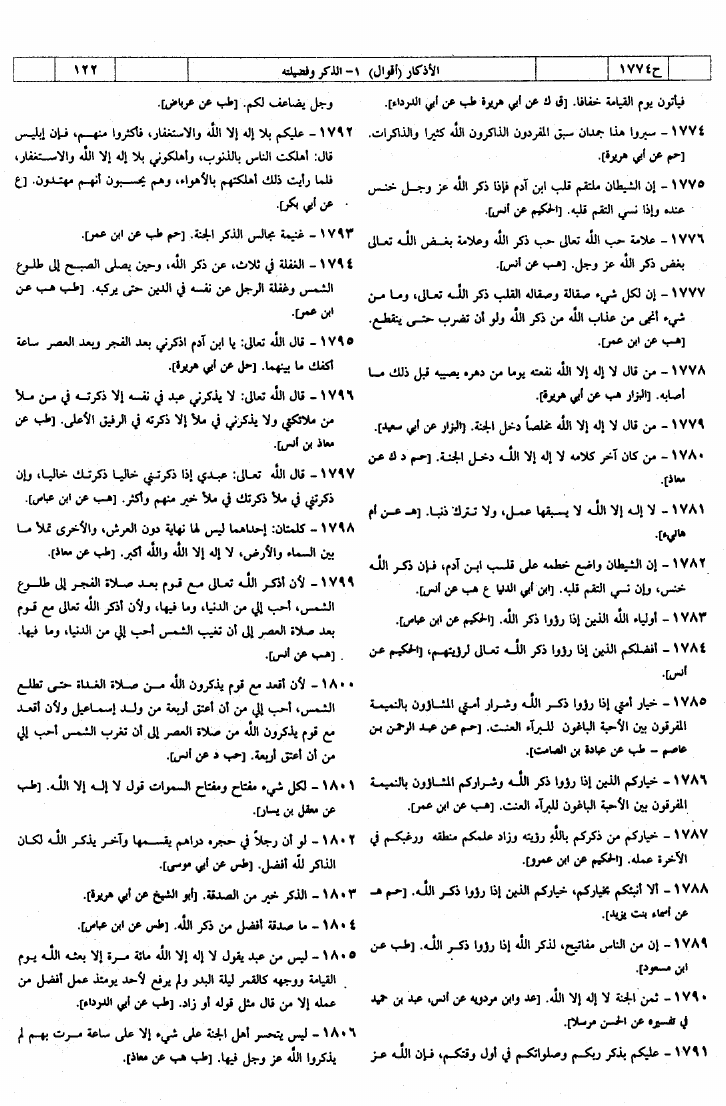 ح١٧٧٤
الأذكار (أقوال) ١- الذكر وفضيلته
١٢٢
فيأتون يوم القيامة خفافا. [ق ك عن أبي هريرة طب عن أبي الدرداء].
١٧٧٤- سيروا هذا جمدان سبق المفردون الذاكرون الله كثيرا والذاكرات.
[حم عن أبي هريرة].
١٧٧٥- إن الشيطان ملتقم قلب ابن آدم فإذا ذكر الله عز وجل خنس
عنده وإذا نسي التقم قلبه. [الحكيم عن أنس].
١٧٧٦- علامة حب الله تعالى حب ذكر الله وعلامة بغض الله تعالى
بغض ذكر الله عز وجل. [هب عن أنس].
١٧٧٧- إن لكل شيء صقالة وصقاله القلب ذكر الله تعالى، وما من
شيء أنجى من عذاب الله من ذكر الله ولو أن تضرب حتى ينقطع.
[هب عن ابن عمر].
١٧٧٨- من قال لا إله إلا الله نفعته يوما من دهره يصيبه قبل ذلك ما
أصابه. [البزار هب عن أبي هريرة].
١٧٧٩- من قال لا إله إلا الله مخلصاً دخل الجنة. [البزار عن أبي سعيد].
١٧٨٠- من كان آخر كلامه لا إله إلا الله دخل الجنة. [حم د ك عن
معاذ].
١٧٨١- لا إله إلا الله لا يسبقها عمل، ولا تترك ذنبا. [هـ عن أم
هانيء].
١٧٨٢- إن الشيطان واضع خطمه على قلب ابن آدم، فإن ذكر الله
خنس، وإن نسي التقم قلبه. [ابن أبي الدنيا ع هب عن أنس].
١٧٨٣- أولياء الله الذين إذا رؤوا ذكر الله. [الحكيم عن ابن عباس].
١٧٨٤- أفضلكم الذين إذا رؤوا ذكر الله تعالى لرؤيتهم، [الحكيم عن
أنس].
١٧٨٥- خيار أمتي إذا رؤوا ذكر الله وشرار أمتي المشاؤون بالنميمة
المفرقون بين الأحبة الباغون للبرآء العنت. [حم عن عبد الرحمن بن
عاصم - طب عن عبادة بن الصامت].
١٧٨٦- خياركم الذين إذا رؤوا ذكر الله وشراركم المشاؤون بالنميمة
المفرقون بين الأحبة الباغون للبرآء العنت. [هب عن ابن عمر].
١٧٨٧- خياركم من ذكركم بالله رؤيته وزاد علمكم منطقه ورغبكم في
الآخرة عمله. [الحكيم عن ابن عمرو].
١٧٨٨- ألا أنبئكم بخياركم، خياركم الذين إذا رؤوا ذكر الله. [حم هـ
عن أسماء بنت يزيد].
١٧٨٩- إن من الناس مفاتيح، لذكر الله إذا رؤوا ذكر الله. [طب عن
ابن مسعود].
١٧٩٠- ثمن الجنة لا إله إلا الله. [عد وابن مردويه عن أنس، عبد بن حميد
في تفسيره عن الحسن مرسلا].
١٧٩١- عليكم بذكر ربكم وصلواتكم في أول وقتكم، فإن الله عز
وجل يضاعف لكم. [طب عن عرباض].
١٧٩٢- عليكم بلا إله إلا الله والاستغفار، فأكثروا منهم، فإن إبليس
قال: أهلكت الناس بالذنوب، وأهلكوني بلا إله إلا الله والاستغفار،
فلما رأيت ذلك أهلكتهم بالأهواء، وهم يحسبون أنهم مهتدون. [ع
عن أبي بكر].
١٧٩٣- غنيمة مجالس الذكر الجنة. [حم طب عن ابن عمر].
١٧٩٤- الغفلة في ثلاث، عن ذكر الله، وحين يصلى الصبح إلى طلوع
الشمس وغفلة الرجل عن نفسه في الدين حتى يركبه. [طب هب عن
ابن عمر].
١٧٩٥- قال الله تعالى: يا ابن آدم اذكرني بعد الفجر وبعد العصر ساعة
أكفك ما بينهما. [حل عن أبي هريرة].
١٧٩٦- قال الله تعالى: لا يذكرني عبد في نفسه إلا ذكرته في من ملأ
من ملائكتي ولا يذكرني في ملأ إلا ذكرته في الرفيق الأعلى. [طب عن
معاذ بن أنس].
١٧٩٧- قال الله تعالى: عبدي إذا ذكرتني خاليا ذكرتك خاليا، وإن
ذكرتني في ملأ ذكرتك في ملأ خير منهم وأكثر. [هب عن ابن عباس].
١٧٩٨- كلمتان: إحداهما ليس لها نهاية دون العرش، والأخرى تملأ ما
بين السماء والأرض، لا إله إلا الله والله أكبر. [طب عن معاذ].
١٧٩٩- لأن أذكر الله تعالى مع قوم بعد صلاة الفجر إلى طلوع
الشمس، أحب إلي من الدنيا، وما فيها، ولأن أذكر الله تعالى مع قوم
بعد صلاة العصر إلى أن تغيب الشمس أحب إلي من الدنيا، وما فيها.
[هب عن أنس].
١٨٠٠- لأن أقعد مع قوم يذكرون الله من صلاة الغداة حتى تطلع
الشمس، أحب إلي من أن أعتق أربعة من ولد إسماعيل ولأن أقعد
مع قوم يذكرون الله من صلاة العصر إلى أن تغرب الشمس أحب إلي
من أن أعتق أربعة. [حب د عن أنس].
١٨٠١- لكل شيء مفتاح ومفتاح السموات قول لا إله إلا الله. [طب
عن معقل بن يسار].
١٨٠٢- لو أن رجلاً في حجره دراهم يقسمها وآخر يذكر الله لكان
الذاكر لله أفضل. [طس عن أبي موسى].
١٨٠٣- الذكر خير من الصدقة. [أبو الشيخ عن أبي هريرة].
١٨٠٤- ما صدقة أفضل من ذكر الله. [طس عن ابن عباس].
١٨٠٥- ليس من عبد يقول لا إله إلا الله مائة مرة إلا بعثه الله يوم
القيامة ووجهه كالقمر ليلة البدر ولم يرفع لأحد يومئذ عمل أفضل من
عمله إلا من قال مثل قوله أو زاد. [طب عن أبي الدرداء].
١٨٠٦- ليس يتحسر أهل الجنة على شيء إلا على ساعة مرت بهم لم
يذكروا الله عز وجل فيها. [طب هب عن معاذ].